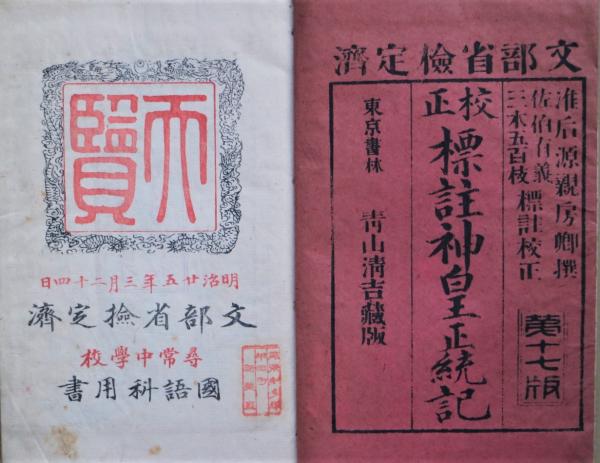 文部省檢定濟
准后源親房卿撰
佐伯有義
三木五百枝
標註校正
第十七版
校正
標註神皇正統記
東京書林 青山清吉藏版
天覽
明治廿五年三月二十四日
文部省撿定濟
尋常中學校
國語科用書